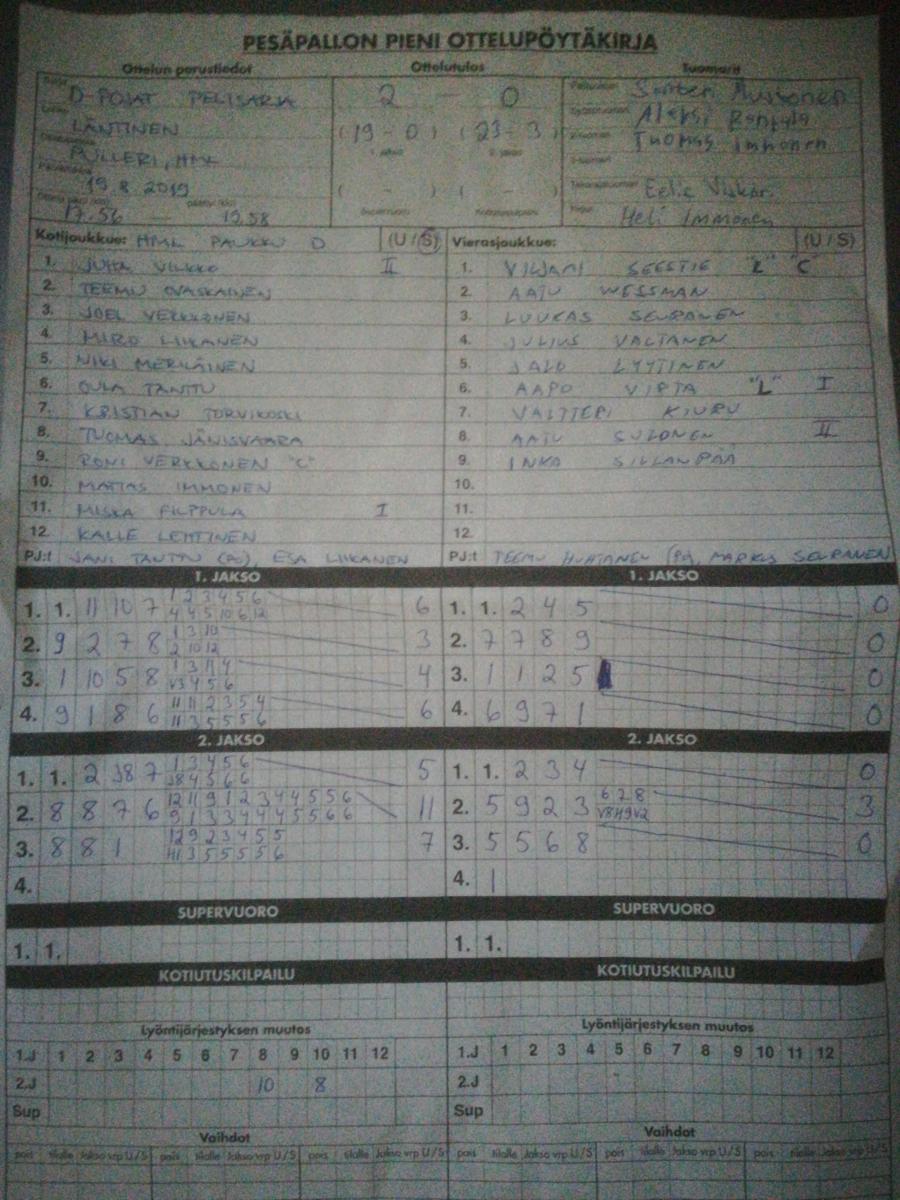 PESÄPALLON PIENI OTTELUPÖYTÄKIRJA
Ottelun perustiedot Ottelutulos Tuomarit
D-POJAT PELISARJA 2 - 0
LÄNTINEN (19 - 0) (23 - 3) Aleksi
PULLERI, HML Tuomas Immonen
19.8.2019 ( - ) ( - )
17.56 — 19.58 Heli Immonen
Kotijoukkue: HML PAUKKU D (U / S) Vierasjoukkue: (U / S)
1. JUHA VILKKO II 1. VILJAMI SEESTIE "L" "C"
2. TEEMU OVASKAINEN 2. AATU WESSMAN
3. JOEL VERKKONEN 3. LUUKAS SEURANEN
4. MIRO LIIKANEN 4. JULIUS VALTANEN
5. NIKI MERILÄINEN 5. JALO LYYTINEN
6. OULA TANTTU 6. AAPO VIRTA "L" I
7. KRISTIAN TORVIKOSKI 7. VALTTERI KIURU
8. TUOMAS JÄNISVAARA 8. AATU SULONEN II
9. RONI VERKKONEN "C" 9. INKA SILLANPÄÄ
10. MATIAS IMMONEN 10.
11. MISKA FILPPULA I 11.
12. KALLE LEHTINEN 12.
PJ:t JANI TANTTU (PJ), ESA LIIKANEN PJ:t TEEMU HUHTANEN (PJ), MARKUS SEURANEN
1. JAKSO 1. JAKSO
1. 1. 11 10 7 1 2 3 4 5 6 6 1. 1. 2 4 5 0
4 4 5 10 6 12
2. 9 2 7 8 1 3 10 3 2. 7 7 8 9 0
2 10 12
3. 1 10 5 8 1 3 11 4 4 3. 1 1 2 5 0
V3 4 5 6
4. 9 1 8 6 11 11 2 3 5 4 6 4. 6 9 7 1 0
11 3 5 5 5 6
2. JAKSO 2. JAKSO
1. 1. 2 J8 7 1 3 4 5 6 5 1. 1. 2 3 4 0
J8 4 5 6 6
2. 8 8 7 6 12 11 9 1 2 3 4 4 5 5 6 11 2. 5 9 2 3 6 7 8 3
9 1 3 3 4 4 4 5 5 6 6 V8 H9 V2
3. 8 8 1 12 9 2 3 4 5 5 7 3. 5 5 6 8 0
H1 3 5 5 5 5 6
4. 4. 1
SUPERVUORO SUPERVUORO
1. 1. 1. 1.
KOTIUTUSKILPAILU KOTIUTUSKILPAILU
Lyöntijärjestyksen muutos Lyöntijärjestyksen muutos
1.J 1 2 3 4 5 6 7 8 9 10 11 12 1.J 1 2 3 4 5 6 7 8 9 10 11 12
2.J 10 8 2.J
Sup Sup
Vaihdot Vaihdot
pois tilalle Jakso vrp U/S pois tilalle Jakso vrp U/S pois tilalle Jakso vrp U/S pois tilalle Jakso vrp U/S pois tilalle Jakso vrp U/S pois tilalle Jakso vrp U/S